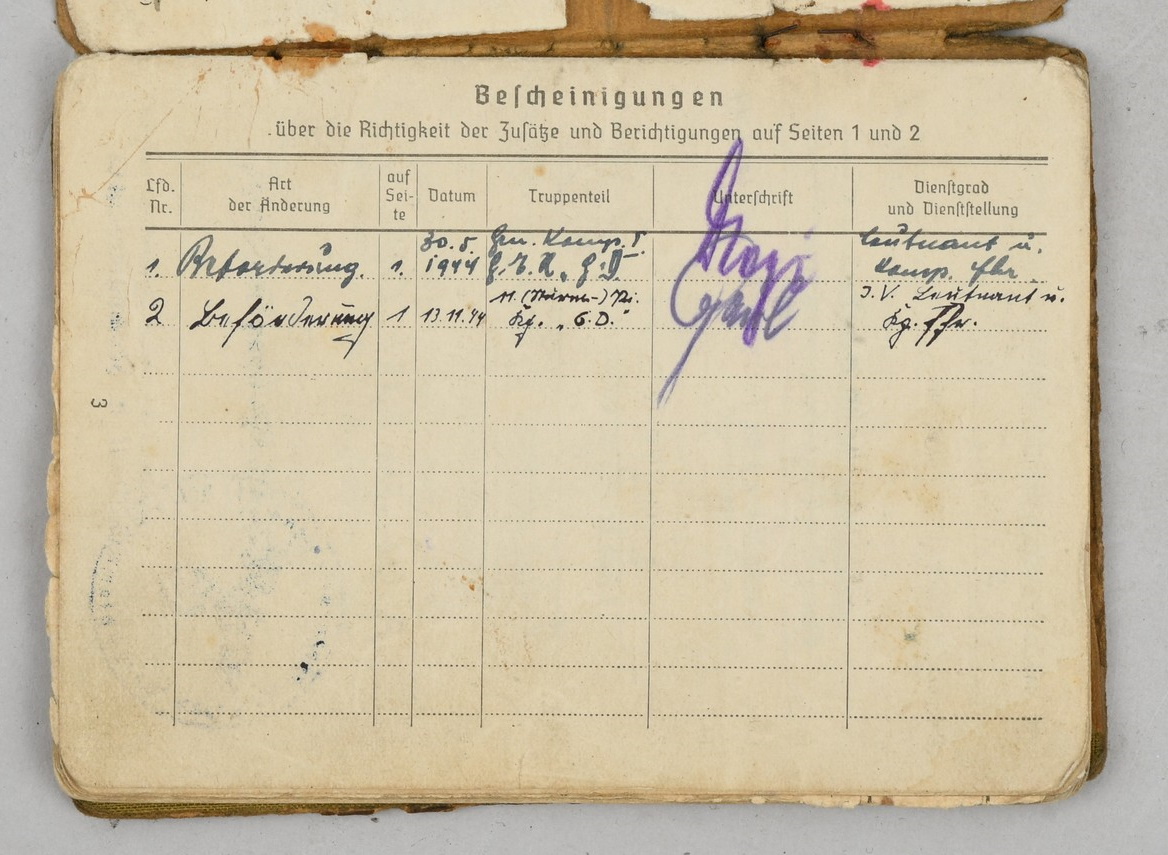 Bescheinigungen
über die Richtigkeit der Zusätze und Berichtigungen auf Seiten 1 und 2
Lfd. Nr.
Art der Änderung
auf Sei- te
Datum
Truppenteil
Unterschrift
Dienstgrad und Dienststellung
1. Beförderung 1. 30.5. 1944 Gen. Komp. Leutnant u. Komp. Fhr.
2 Beförderung 1 13.11.44 11. (Sturm-) Pi. Kp. „G.D." J.V. Leutnant u. Kp. Fhr.
3